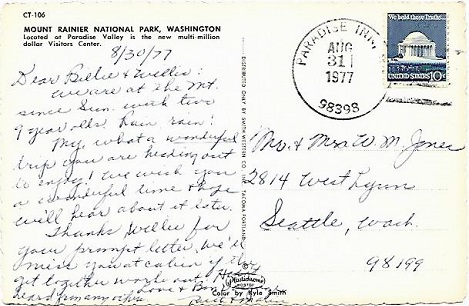 CT-106
MOUNT RAINIER NATIONAL PARK, WASHINGTON
Located at Paradise Valley is the new multi-million
dollar Visitors Center.
8/30/77
Dear Billie & Willie:
We are at the Mt.
since Sun. with two
9 year olds. Rain rain!
My, what a wonderful
trip you are heading out
to enjoy! We wish you
a wonderful time & hope
we'll hear about it later.
Thanks Willie for
your prompt letter. We'll
miss you at cabin if our
get together works out.
DISTRIBUTED ONLY BY SMITH-WESTERN CO. INC., TACOMA-PORTLAND
Plastichrome
Color by Kyle Smith
PARADISE INN
AUG
31
1977
98398
We hold these Truths...
UNITED STATES 10c
Mr. & Mrs. W. M. Jones
2814 West Lynn
Seattle, Wash.
98199